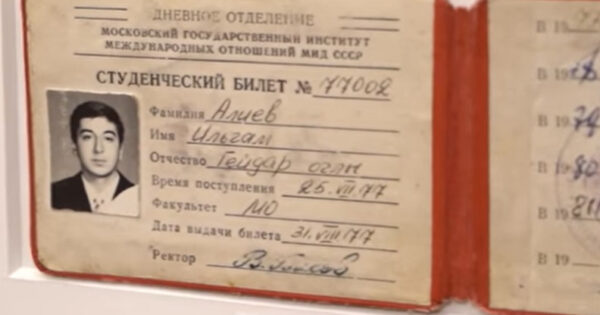 ДНЕВНОЕ ОТДЕЛЕНИЕ
МОСКОВСКИЙ ГОСУДАРСТВЕННЫЙ ИНСТИТУТ
МЕЖДУНАРОДНЫХ ОТНОШЕНИЙ МИД СССР
СТУДЕНЧЕСКИЙ БИЛЕТ № 77002
Фамилия Алиев
Имя Ильгам
Отчество Гейдар оглы
Время поступления 25.VIII.77
Факультет МО
Дата выдачи билета 31.VIII.77
Ректор
В 19
В 19
В 1979
В 1980
В 1981
В 19